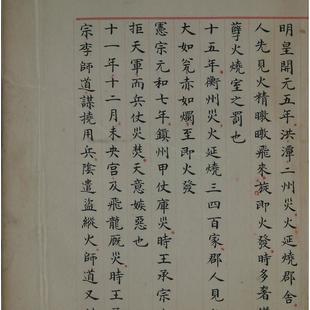 明皇開元五年洪潭二州災火延燒郡舍
人先見火精暾暾飛來旋即火發時多者
孽火燒室之罰也
十五年衡州災火延燒三四百家郡人見
大如瓮赤如燭至即火發
憲宗元和七年鎮州甲仗庫災時王承宗
拒天軍而兵仗災焚天意嫉惡也
十一年十二月未央宮及飛龍厩災時王承
宗李師道謀撓用兵陰遣盜縱火師道又